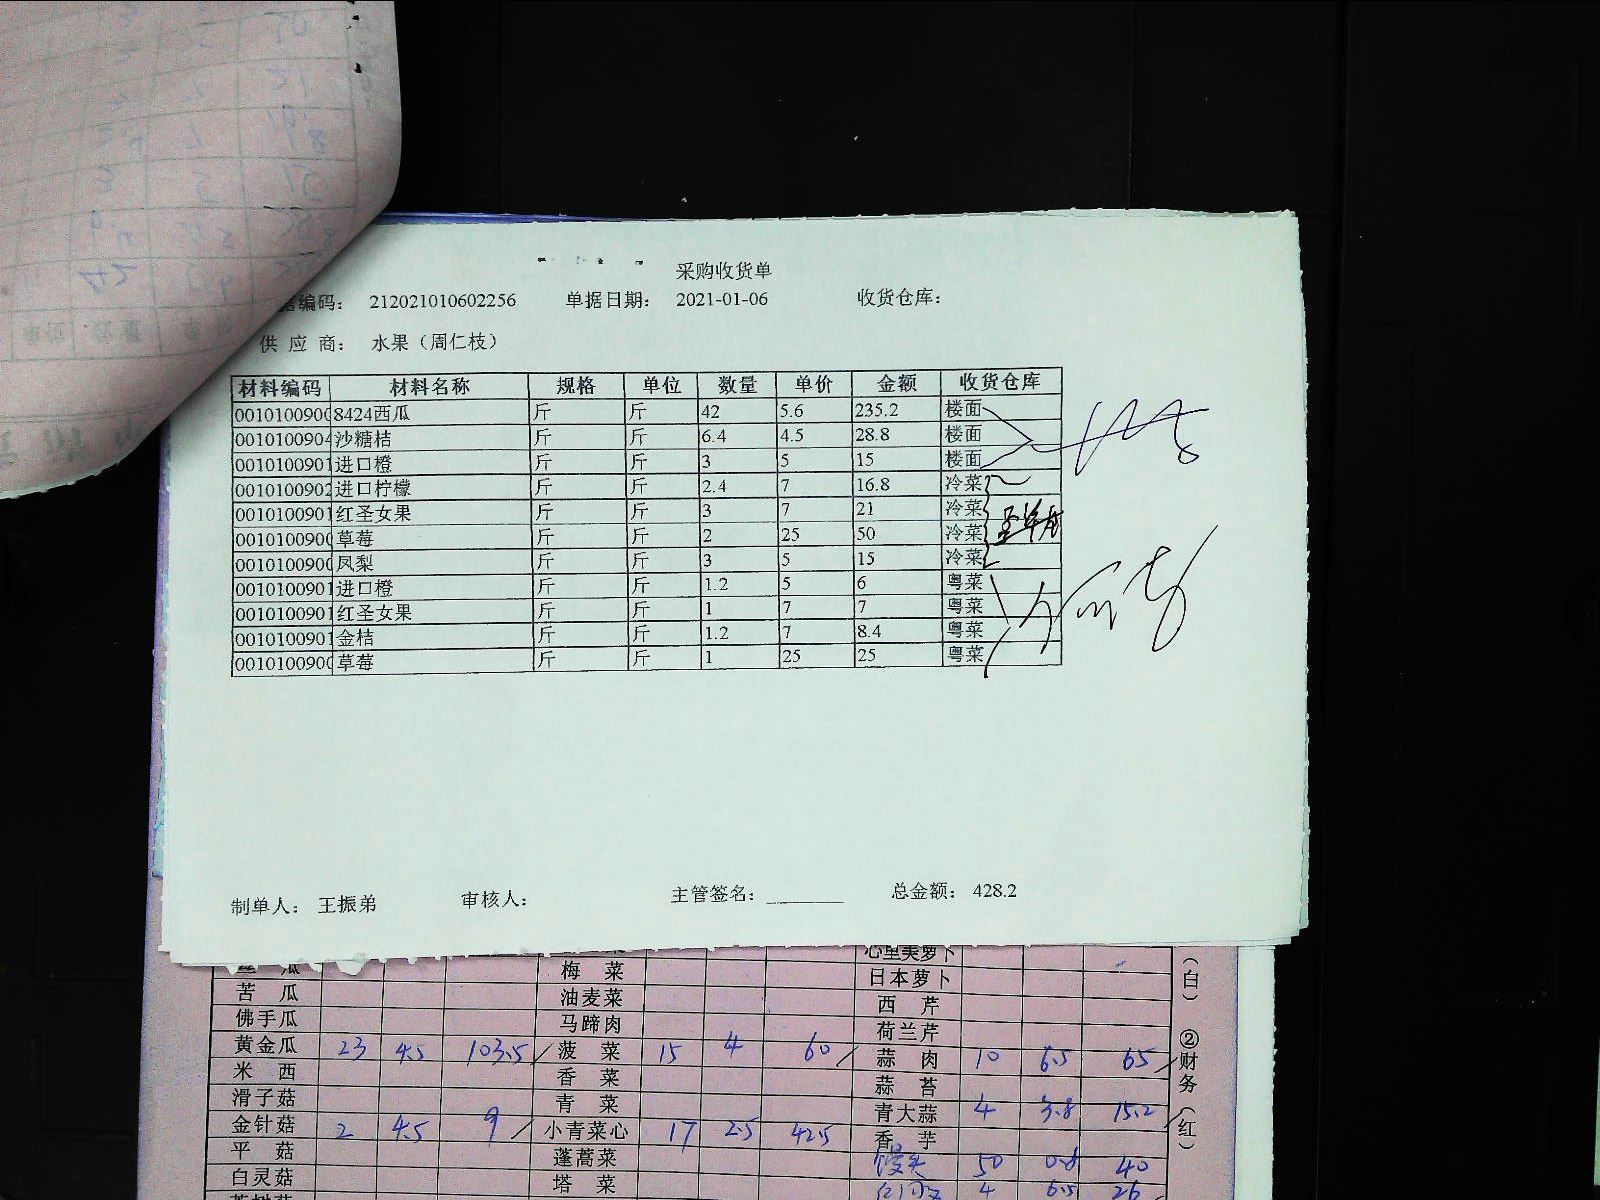 采购收货单
编码： 212021010602256 单据日期： 2021-01-06 收货仓库：
供 应 商： 水果（周仁枝）
材料编码 材料名称 规格 单位 数量 单价 金额 收货仓库
0010100900 8424西瓜 斤 斤 42 5.6 235.2 楼面
0010100904 沙糖桔 斤 斤 6.4 4.5 28.8 楼面
0010100901 进口橙 斤 斤 3 5 15 楼面
0010100902 进口柠檬 斤 斤 2.4 7 16.8 冷菜
0010100901 红圣女果 斤 斤 3 7 21 冷菜
0010100900 草莓 斤 斤 2 25 50 冷菜
0010100900 凤梨 斤 斤 3 5 15 冷菜
0010100901 进口橙 斤 斤 1.2 5 6 粤菜
0010100901 红圣女果 斤 斤 1 7 7 粤菜
0010100901 金桔 斤 斤 1.2 7 8.4 粤菜
0010100900 草莓 斤 斤 1 25 25 粤菜
制单人： 王振弟 审核人： 主管签名： 总金额： 428.2
梅 菜 日本萝卜
苦 瓜 油麦菜 西 芹
佛手瓜 马蹄肉 荷兰芹
黄金瓜 23 4.5 103.5 菠 菜 15 4 60 蒜 肉 10 6.5 65
米 西 香 菜 蒜 苔
滑子菇 青 菜 青大蒜 4 3.8 15.2
金针菇 2 4.5 9 小青菜心 17 2.5 42.5 香 芋
平 菇 蓬蒿菜 馒头 50 0.8 40
白灵菇 塔 菜 4 6.5 26
（白） ②财务（红）